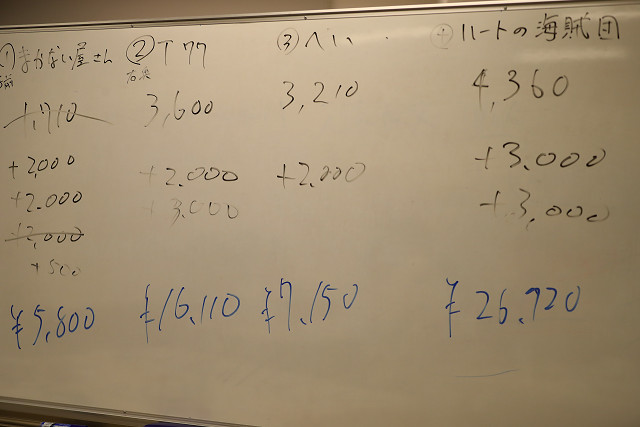 ① まかない屋さん
4,710
+2,000
+2.000
+2,000
+500
¥5,800
② T77
3,600
+2.000
+3.000
¥16,110
③ へい
3,210
+2,000
¥7,150
④ ハートの海賊団
4,360
+3.000
+3,000
¥26,920